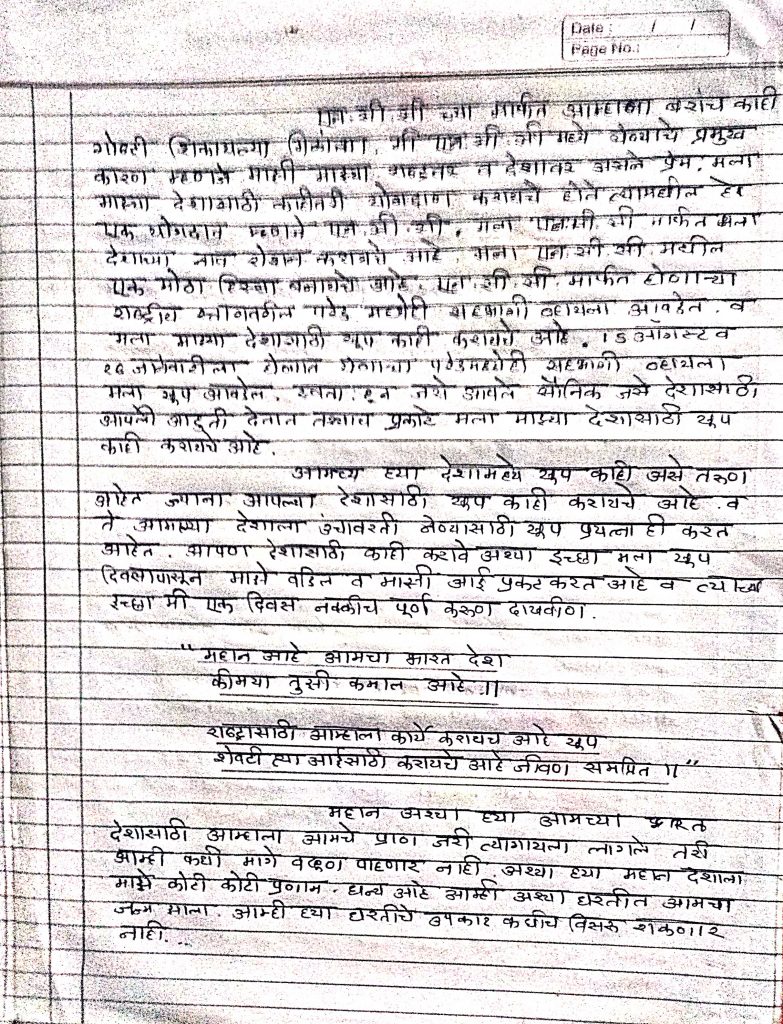 Date : / /
Page No.:
एन.सी.सी च्या मार्फत आम्हाला बरोच काही
गोष्टी शिकायल्या मिळाल्या. मी एन.सी.सी मध्ये येण्याचे प्रमुख
कारण म्हणजे माझी माझ्या राष्ट्रावर व देशावर असले प्रेम. मला
माझ्या देशासाठी काहीतरी योगदान करायचे होते त्यामधील हे
एक योगदान म्हणजे एन.सी.सी. मला एन.सी.सी मार्फत मला
देशाच्या नाव रोशन करायचे आहे. मला एन.सी.सी मधील
एक मोठा हिस्सा बनायचे आहे. एन.सी.सी. मार्फत होणाऱ्या
राष्ट्रीय परेड मध्येही सहभागी व्हायला आवडेल. व
मला माझ्या देशासाठी खूप काही करायचे आहे. 15 ऑगस्ट व
२६ जानेवारीला होणाऱ्या परेडमध्येही सहभागी व्हायला
मला खूप आवडेल. जसे आपले सैनिक जसे देशासाठी
आपली आहूती देतात तश्याच प्रकारे मला माझ्या देशासाठी खूप
काही करायचे आहे.
आमच्य ह्या देशामध्ये खूप काही असे तरुण
आहेत ज्यांना आपल्या देशासाठी खूप काही करायचे आहे. व
ते आमच्या देशाला उंचावरती नेण्यासाठी खूप प्रयत्न ही करत
आहेत. आपण देशासाठी काही करावे अश्या इच्छा मला खूप
दिवसापासून माझे वडिल व माझी आई प्रकट करत आहे व त्याच्या
इच्छा मी एक दिवस नक्कीच पूर्ण करुण दाखवीण.
" महान आहे आमचा भारत देश
कीमया तुझी कमाल आहे ॥
राष्ट्रासाठी आम्हाला कार्य करायचे आहे खूप
शेवटी त्या आईसाठी करायचे आहे जीवण समप्रित ॥"
महान अश्या ह्या आमच्या भारत
देशासाठी आम्हाला आमचे प्राण जरी त्यागायला लागले तरी
आम्ही कधी मागे वळूण पाहणार नाही. अश्या ह्या महान देशाला
माझे कोटी कोटी प्रणाम. धन्य आहे आम्ही अश्या धरतीत आमचा
जन्म झाला. आम्ही ह्या धरतीचे उपकार कधीच विसरू शकणार
नाही...